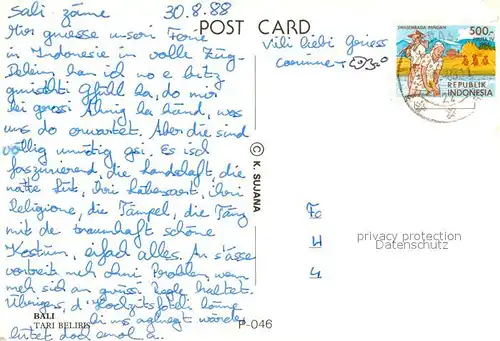 Sali zäme 30.8.88
Mir gniesse unseri Ferie
in Indonesie in volle Züg.
Delein, han ich no e bitz
gmischti Gfühl ka, do mir
kei grossi Ahnig kа händ, was
uns do erwartet. Aber die sind
völlig unnötig gsi. Es isch
faszinierend, die Landschaft, die
nätte Lüt, ihri Lebensart, ihri
Religione, die Tämpel, die Tänz
mit de traumhaft schöne
Kostüm, eifach alles. As Ässe
vertreit meh ohni Problem, wenn
meh sich an gwüssi Regle haltet.
Übrigens, d'Hochzitsfoteli könne
bi uns agluegt wärde,
lütet doch emol a.
BALI
TARI BELIRIS
POST CARD
Vili liebi Gruess
© K. SUJANA
P-046
SWASEMBADA PANGAN
500,-
REPUBLIK
INDONESIA
privacy protection
Datenschutz